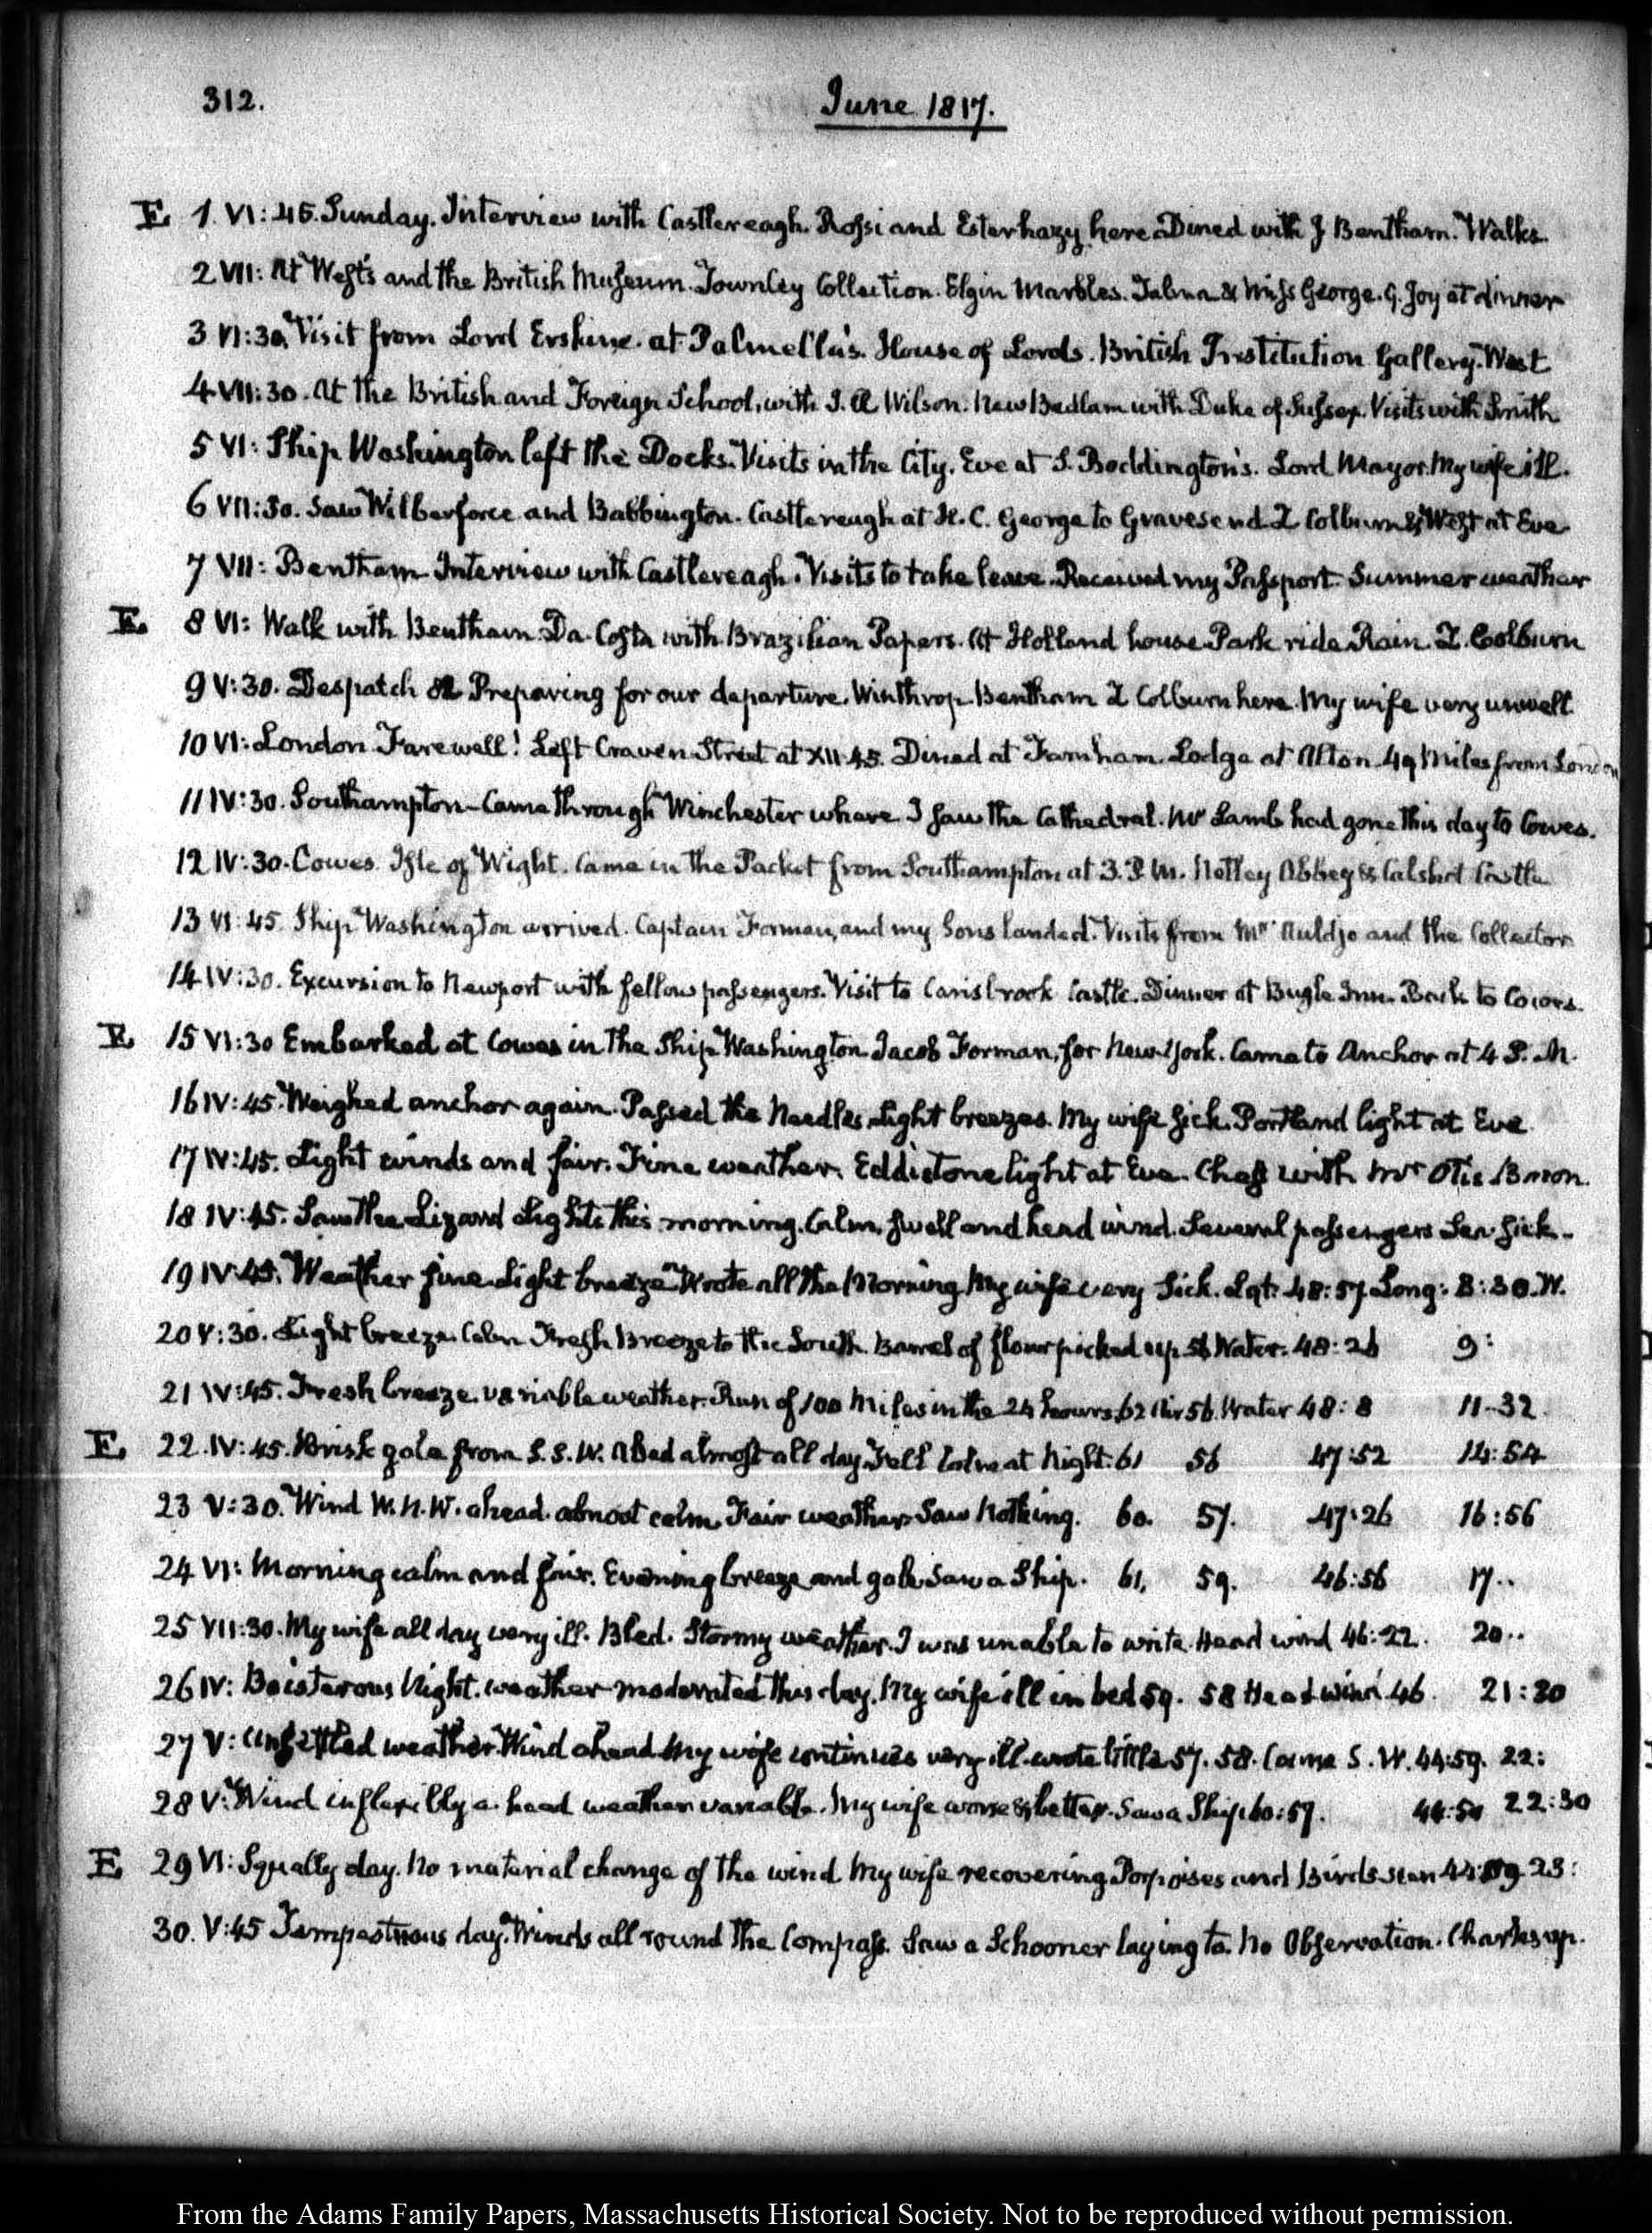 312.
June 1817.
E 1. VI:45. Sunday. Interview with Castlereagh. Rossi and Esterhazy here. Dined with J Bentham. Walks.
2 VII: At West's and the British Museum. Townley Collection. Elgin Marbles. Talma & Miss George. G. Joy at dinner
3 VI:30. Visit from Lord Erskine. at Palmella's. House of Lords. British Institution Gallery. West
4 VII:30. At the British and Foreign School, with I. A Wilson. New Bedlam with Duke of Sussex. Visits with Smith
5 VI: Ship Washington left the Docks. Visits in the City. Eve at S. Boddington's. Lord Mayor. My wife ill.
6 VII:30. Saw Wilberforce and Babbington. Castlereagh at H. C. George to Gravesend Z Colburn & West at Eve
7 VII: Bentham. Interview with Castlereagh. Visits to take leave. Received my Passport. Summer weather
E 8 VI: Walk with Bentham. Da Costa with Brazilian Papers. At Holland house. Park ride Rain. Z. Colburn
9 V:30. Despatch Preparing for our departure. Winthrop. Bentham Z Colburn here. My wife very unwell.
10 VI: London Farewell! Left Craven Street at XII.45. Dined at Farnham. Lodge at Alton 49 Miles from London
11 IV:30. Southampton—Came through Winchester where I saw the Cathedral. Mr Lamb had gone this day to Cowes.
12 IV:30. Cowes. Isle of Wight. Came in the Packet from Southampton at 3. P. M. Netley Abbey & Calshot Castle
13 VI:45. Ship Washington arrived. Captain Forman, and my Sons landed. Visits from Mr. Auldjo and the Collector
14 IV:30. Excursion to Newport with fellow passengers. Visit to Carisbrook Castle. Dinner at Bugle Inn. Back to Cowes.
E 15 VI:30 Embarked at Cowes in the Ship Washington Jacob Forman, for New-York. Came to Anchor at 4 P. M.
16 IV:45. Weighed anchor again. Passed the Needles. Light breezes. My wife sick. Portland light at Eve.
17 IV:45. Light winds and fair. Fine weather. Eddistone light at Eve. Chess with Mr Otis
18 IV:45. Saw the Lizard Lights this morning. Calm, swell and head wind. Several passengers Sea-sick.
19 IV:45. Weather fine. Light breeze. Wrote all the Morning My wife very Sick. Lat: 48:57. Long: 8:30. W.
20 V:30. Light breeze. Calm Fresh Breeze to the South. Barrel of flour picked up. 56 Water. 48:26 9:
21 IV:45. Fresh breeze. variable weather. Run of 100 Miles in the 24 hours. 62 Air 56. Water 48:8 11-32.
E 22. IV:45. Brisk gale from S. S. W. Abed almost all day. Fell Calm at Night. 61 56 47:52 14:54
23 V:30. Wind W. N. W. ahead. almost calm. Fair weather Saw Nothing. 60. 57. 47:26 16:56
24 VI: Morning calm and fair. Evening breeze and gale Saw a Ship. 61. 59. 46:56 17..
25 VII:30. My wife all day very ill. Bled. Stormy weather. I was unable to write. Head wind 46:22. 20..
26 IV: Boisterous Night. weather moderated this day. My wife ill in bed 59. 58 Head wind. 46. 21:30
27 V: Unsettled weather. Wind ahead. My wife continues very ill. wrote little 57. 58. Came S. W. 44:59. 22:
28 V: Wind inflexibly a-head weather variable. My wife worse & better. Saw a Ship. 60:57. 44:50 22:30
E 29 VI: Squally day. No material change of the wind My wife recovering Porpoises and Birds seen 23:
30. V:45 Tempestuous day. Winds all round the Compass. Saw a Schooner laying to. No Observation. Charles up.
From the Adams Family Papers, Massachusetts Historical Society. Not to be reproduced without permission.